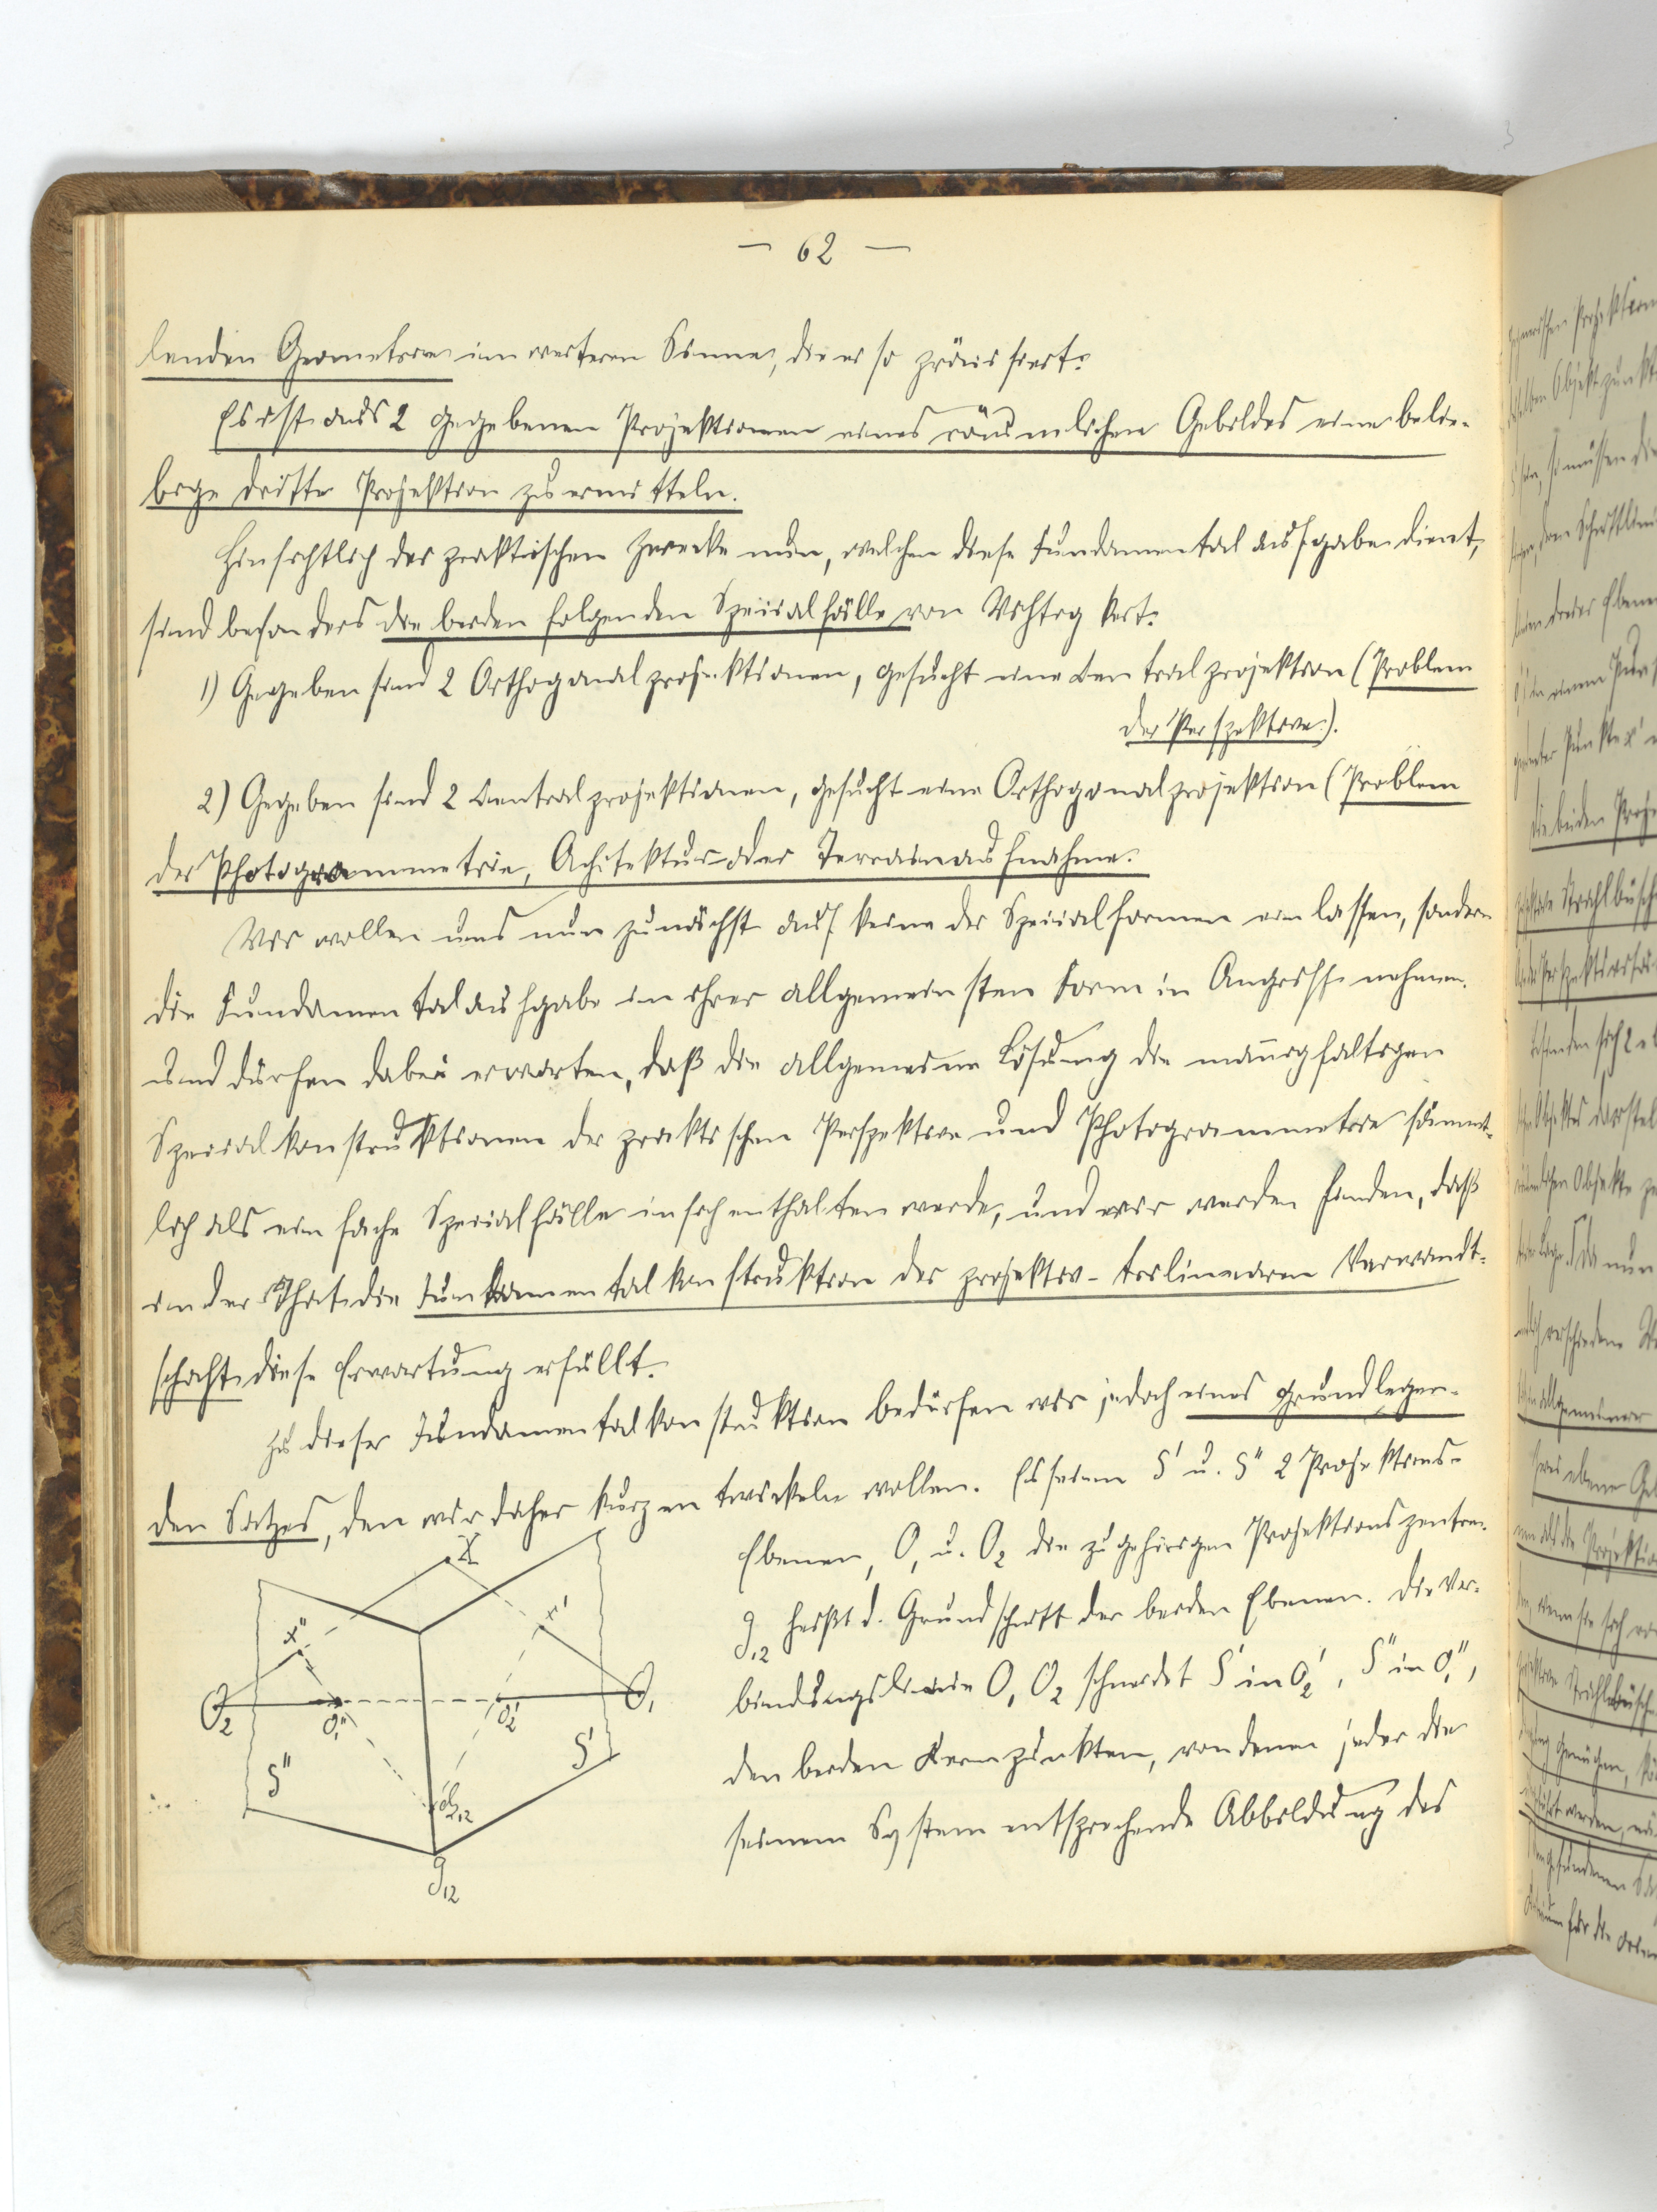 — 62 —
lenden Geometrie im weiteren Sinne, die er so präcisiert:
Es ist aus 2 gegebenen Projektionen eines räumlichen Gebildes eine belie-
bige dritte Projektion zu ermitteln.
Hinsichtlich der praktischen Zwecke nun, welchen diese Fundamentalaufgabe dient,
sind besonders die beiden folgenden Specialfälle von Wichtigkeit:
1) Gegeben sind 2 Orthogonalprojektionen, gesucht eine Centralprojektion (Problem
der Perspektive).
2) Gegeben sind 2 Centralprojektionen, gesucht eine Orthogonalprojektion (Problem
der Photogrammetrie, Achitektur- oder Terrainaufnahme.
Wir wollen uns nun zunächst auf keine der Specialformen einlassen, sondern
die Fundamentalaufgabe in ihrer allgemeinsten Form in Angriff nehmen.
und dürfen dabei erwarten, daß die allgemeine Lösung die mannigfaltigen
Specialkonstruktionen der praktischen Perspektive und Photogrammetrie sämmt-
lich als einfache Specialfälle in sich enthalten werde, und wir werden finden, daß
in der That die Fundamentalkonstruktion der projektiv-trilinearen Verwandt-
schaft diese Erwartung erfüllt.
Zu dieser Fundamentalkonstruktion bedürfen wir jedoch eines grundlegen-
den Satzes, den wir daher kurz entwickeln wollen. Es seien S' u. S'' 2 Projektions-
Ebenen, O₁ u. O₂ die zugehörigen Projektionszentren.
g₁₂ heißt d. Grundschnitt der beiden Ebenen. Die Ver-
bindungslinie O₁ O₂ schneidet S' in O₂', S'' in O₁'',
den beiden Kernpunkten, von denen jeder die
seinem System entsprechende Abbildung des
X
x''
x'
O₂
O₁''
O₂'
O₁
S''
S'
g₁₂